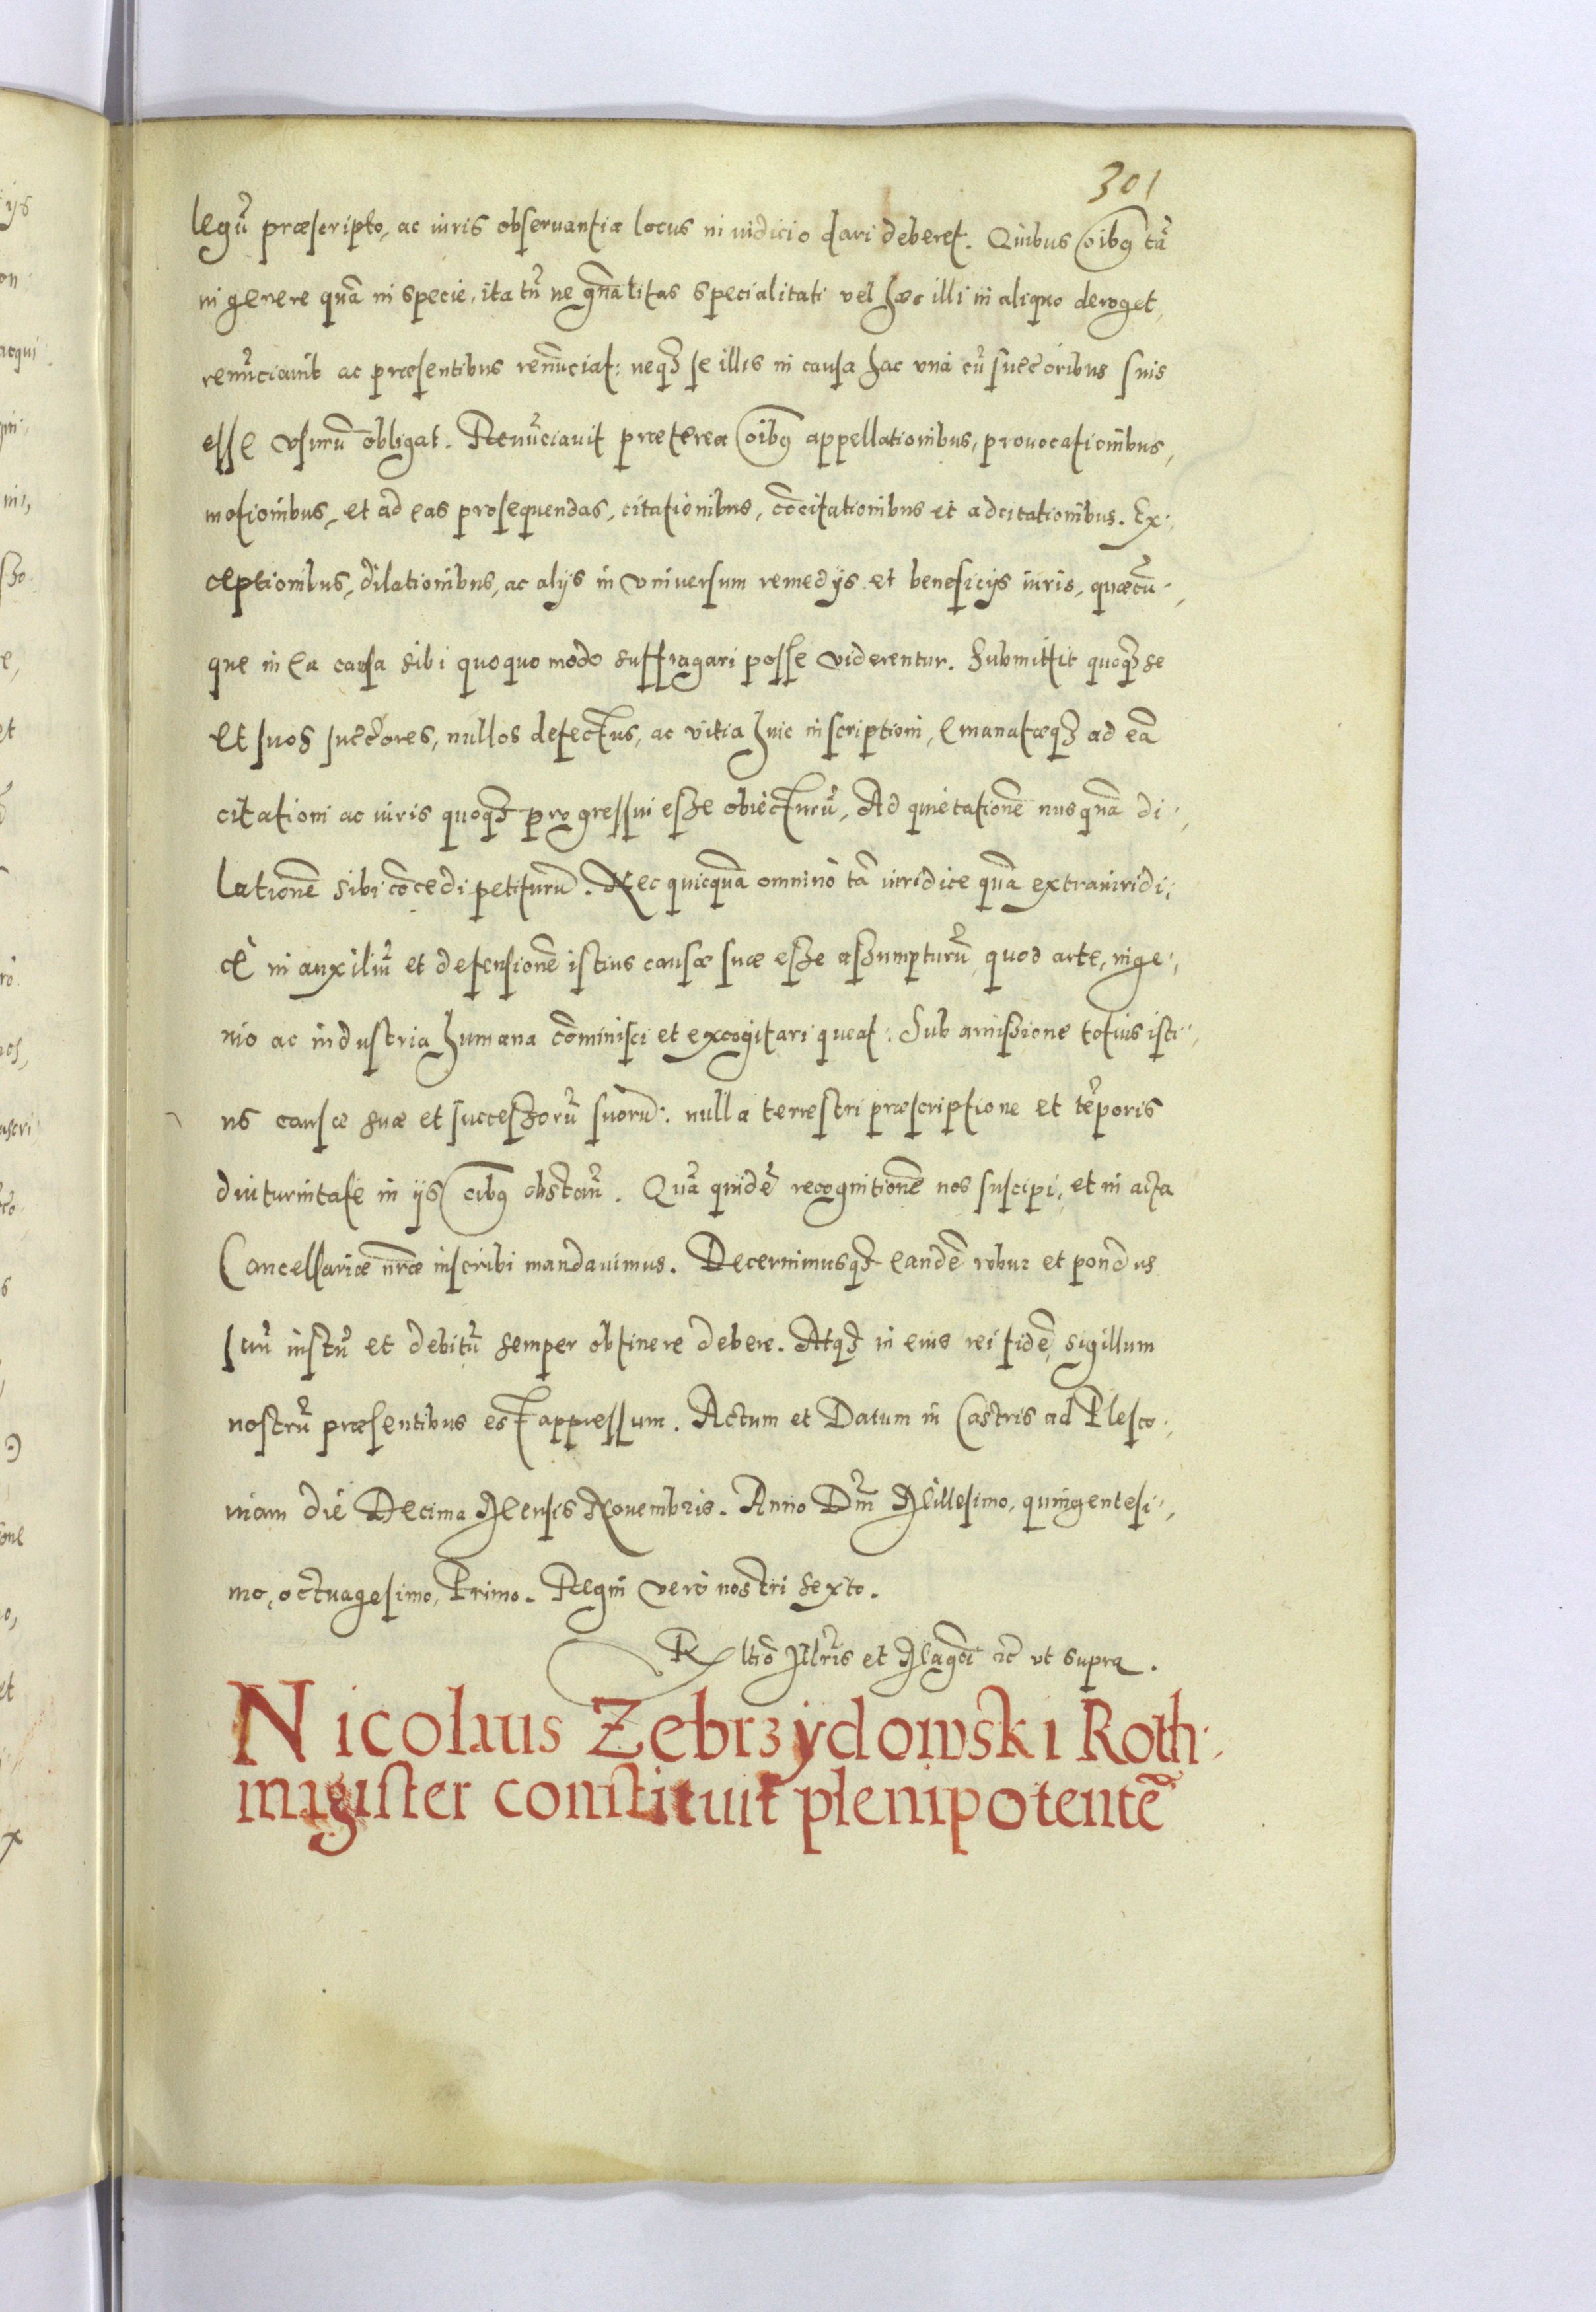 301
legũ præscripto, ac iuris obseruantiæ locus in iudicio dari deberet. Quibus oibq tã
in genere quã in specie, ita tñ ne gñalitas specialitati vel hæc illi in aliquo deroget,
renũciauit ac præsentibus renũciat: neqꝫ se illis in causa hac vnà cũ succoribus suis
esse vsurũ obligat. Renũciauit præterea oibq appellationibus, prouocationibus,
motionibus, et ad eas prosequendas, citationibus, cõcitationibus et adcitationibus. Ex,,
ceptionibus, dilationibus, ac alijs in vniuersum remedijs et beneficijs iuris, quæcũ,,
que in ea causa sibi quoquo modo suffragari posse viderentur. Submittit quoqꝫ se
et suos succores, nullos defectus, ac vitia huic inscriptioni, emanatæqꝫ ad eã
citationi ac iuris quoqꝫ progressui esse obiecturũ, Ad quietationẽ nusquã di,,
lationẽ sibi cõcedi petiturũ. Nec quicquã omnino tã iuridice quã extraiuridi,,
cè in auxiliũ et defensionẽ istius causæ suæ esse assumpturũ, quod arte, inge,,
nio ac industria humana cõminisci et excogitari queat: Sub amissione totius isti,,
us causæ suæ et successorũ suorũ: nulla terrestri præscriptione et tẽporis
diuturnitate in ijs oibq obstañ. Quã quidẽ recognitionẽ nos suscipi, et in acta
Cancellariæ nrae inscribi mandauimus. Decernimusqꝫ eandẽ robur et pondus
suũ iustũ et debitũ semper obtinere debere. Atqꝫ in eius rei fidẽ, sigillum
nostrũ præsentibus est appressum. Actum et Datum in Castris ad Plesco,,
uiam die Decima Mensis Nouembris. Anno Dñi Millesimo, quingentesi,,
mo, octuagesimo, Primo. Regni verò nostri sexto.
Rltio Illris et Magci ꝛc vt supra.
Nicolaus Zebrzydowski Roth,,
magister constituit plenipotentẽ